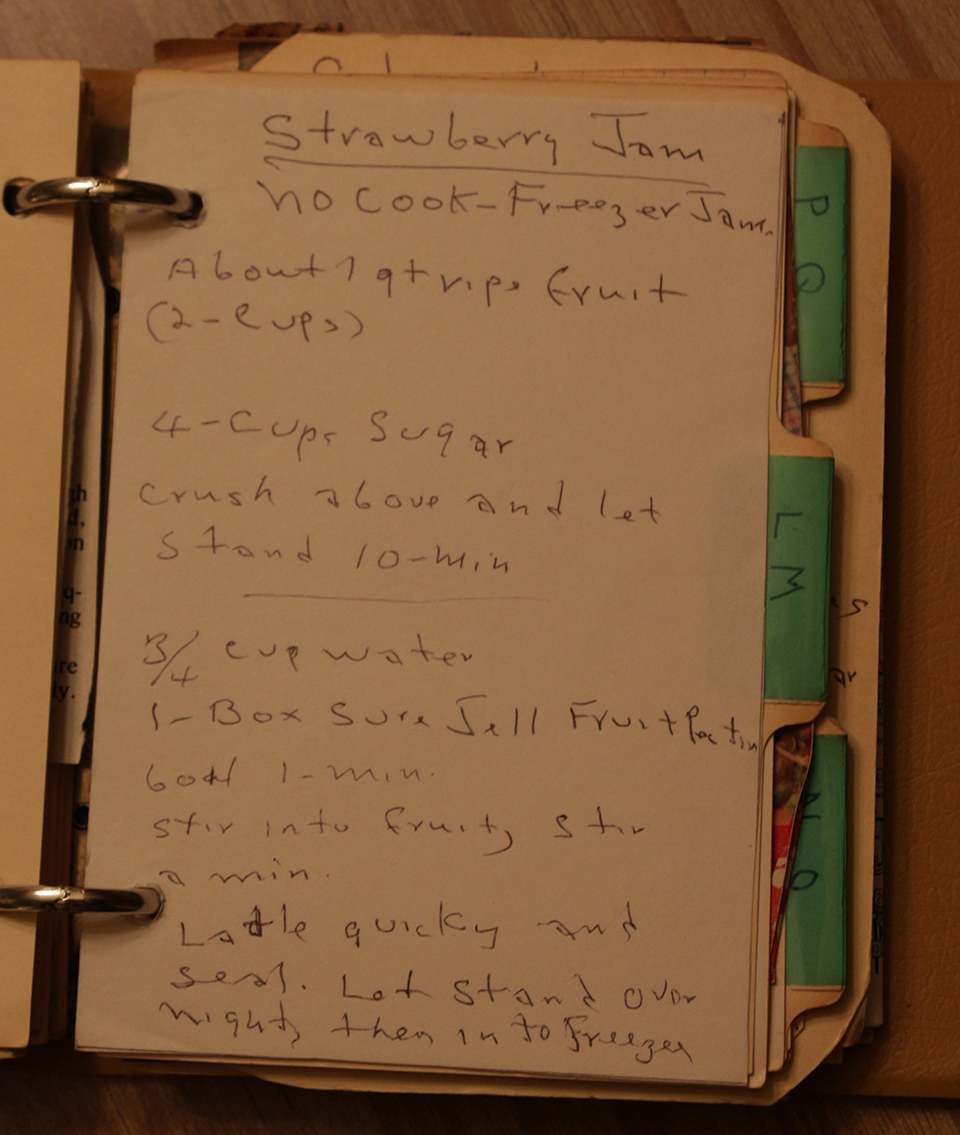 Strawberry Jam
No Cook-Freezer Jam.
About 1 qt ripe fruit
(2-Cups)
4-Cups Sugar
Crush above and let
stand 10-min
3/4 cup water
1-Box Sure Jell Fruit Pectin
boil 1-min.
stir into fruit, stir
a min.
Ladle quicky and
seal. Let stand over
night, then in to Freezer
P
Q
L
M
N
O
gh
d,
on
q-
ng
ure
ly.